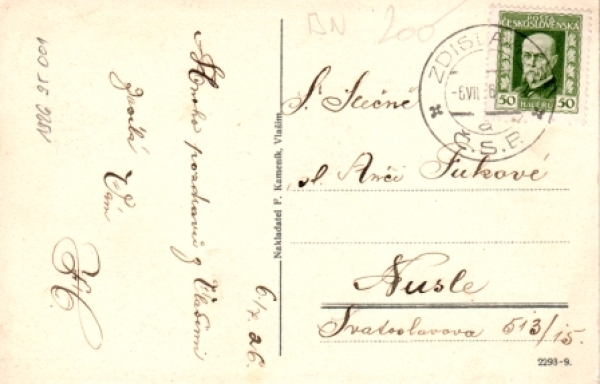 Mnoho pozdravů z Vlašimi
zasílá
Vám
6./7. 26.
Nakladatel F. Kameník, Vlašim.
BN 200
POSTA
ČESKOSLOVENSKÁ
50 HALÉŘŮ 50
ZDISLA
-6.VII.26
a
Č.S.P.
S. Slečně
sl. Anči Fukové
Nusle
Svatoslavova 513/15.
2293-9.